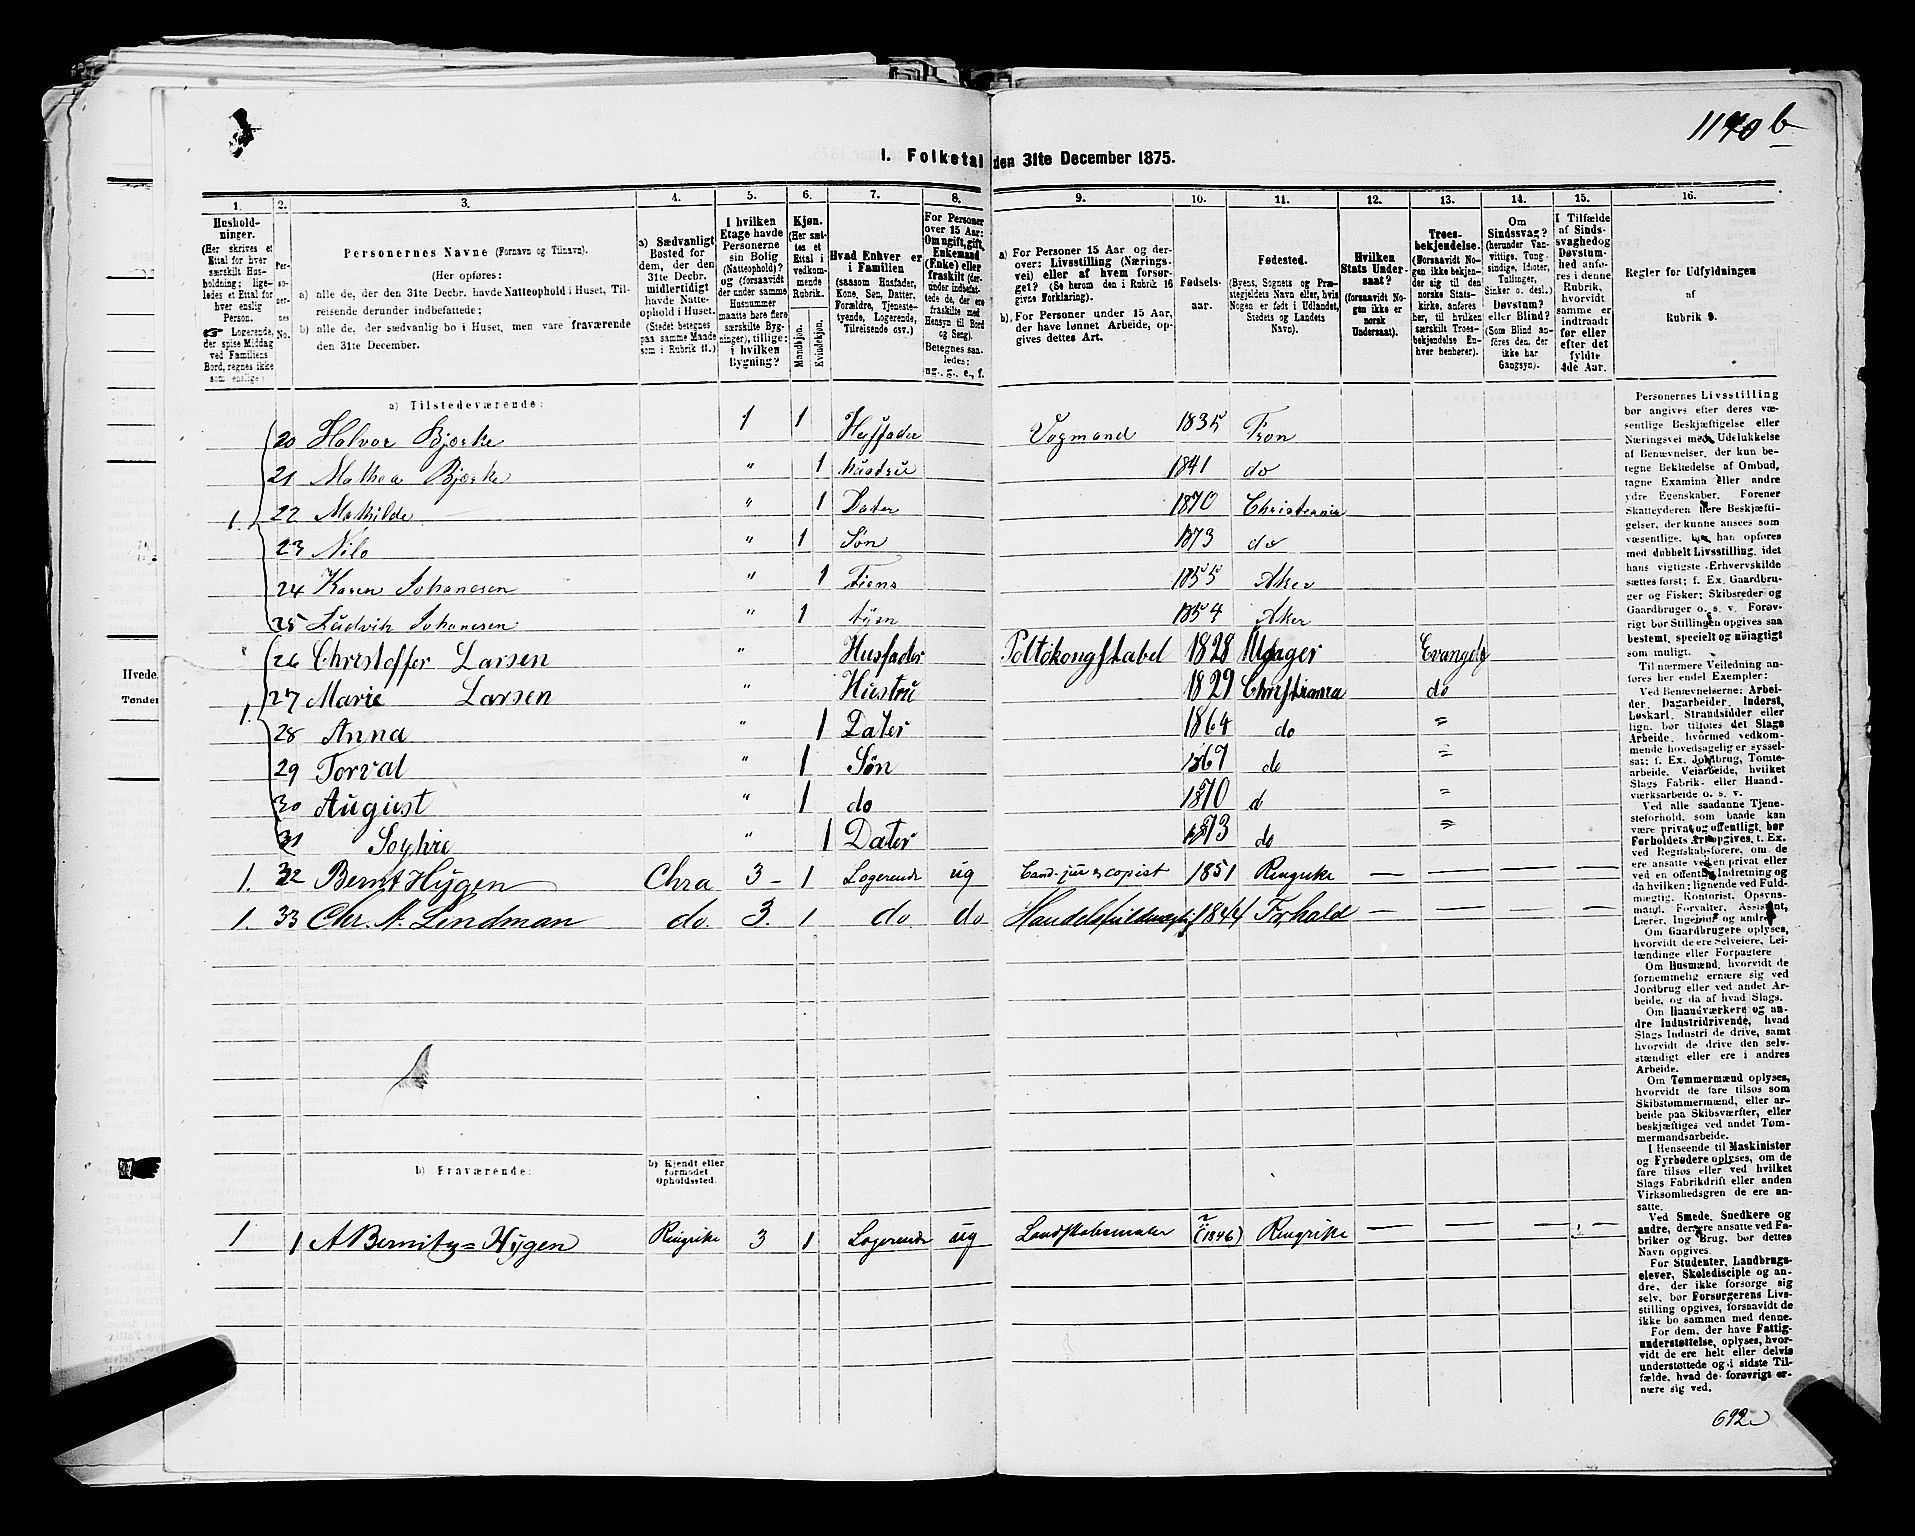 1170 b
1. Folketal den 31te December 1875.
1. 2. 3. 4. 5. 6. 7. 8. 9. 10. 11. 12. 13. 14. 15. 16.
Husholdninger.
(Her skrives et Ettal for hver særskilt Husholdning; ligeledes et Ettal for hver enslig Person.
☞ Logerende, der spise Middag ved Familiens Bord, regnes ikke som enslige.)
Personernes No.
Personernes Navne (Fornavn og Tilnavn).
(Her opføres:
a) alle de, der den 31te Decbr. havde Natteophold i Huset, Tilreisende derunder indbefattede;
b) alle de, der sædvanlig bo i Huset, men vare fraværende den 31te December.
a) Sædvanligt Bosted for dem, der den 31te Decbr. midlertidigt havde Natteophold i Huset.
(Stedet betegnes paa samme Maade som i Rubrik 11.)
I hvilken Etage havde Personerne sin Bolig (Natteophold)? og (forsaavidt der under samme Husnummer maatte høre flere særskilte Bygninger), tillige: i hvilken Bygning?
Kjøn.
(Her sættes et Ettal i vedkommende Rubrik.
Mandkjøn. Kvindekjøn.
Hvad Enhver er i Familien
(saasom Husfader, Kone, Søn, Datter, Forældre, Tjenestetyende, Logerende, Tilreisende osv.)
For Personer over 15 Aar: Om ugift, gift, Enkemand (Enke) eller fraskilt
Betegnes saaledes: ug., g., e., f.
a) For Personer 15 Aar og derover: Livsstilling (Næringsvei) eller af hvem forsørget? (Se herom den i Rubrik 16 givne Forklaring).
b). For Personer under 15 Aar, der have lønnet Arbeide, opgives dettes Art.
Fødselsaar.
Fødested.
(Byens, Sognets og Præstegjeldets Navn eller, hvis Nogen er født i Udlandet, Stedets og Landets Navn).
Hvilken Stats Undersaat?
(forsaavidt Nogen ikke er norsk Undersaat.
Troesbekjendelse.
(Forsaavidt Nogen ikke bekjender sig til den norske Statskirke, anføres her, til hvilken særskilt Troesbekjendelse Enhver henhører).
Om Sindssvag? (herunder Vanvittige, Tungsindige, Idioter, Tullinger, Sinker o. desl.) Døvstum? eller Blind?
(Som Blind anføres den, der ikke har Gangsyn).
I Tilfælde af Sindssvaghed og Døvstumhed anføres i denne Rubrik, hvorvidt samme er indtraadt før eller efter det fyldte 4de Aar.
Regler for Udfyldningen
af
Rubrik 9.
a) Tilstedeværende:
20 Halvor Bjerke 1 1 Husfader Vogmand 1835 Fron
21 Mathea Bjerke " 1 Hustru 1841 do
1. 22 Mathilde " 1 Dater 1870 Christiania
23 Nilo " 1 Søn 1873 do
24 Karen Johanesen " 1 Tiens 1855 Aker
25 Ludvik Johanesen " 1 1854 Aker
26 Christoffer Larsen " Husfader Poltikongstabel 1828 Evangels
1. 27 Marie Larsen " Hustru 1829 Christiania do
28 Anna " 1 Dater 1864 do "
29 Torval " 1 Søn 1867 do "
30 August " 1 do 1870 do "
31 Sophie " 1 Dater 1873 do "
1. 32 Bernt Hygen Chra 3 - 1 Logerende ug Cand. jur & copist 1851 Ringrike — — — —
1. 33 Chr. A. Lindman do. 3. 1 do. do Handelsfuldmægtig 1844 Frhald — — — —
b) Fraværende:
b) Kjendt eller formodet Opholdssted.
1 1 A Bernitz=Hygen Ringrike 3 1 Logerende ug Landskabsmaler (1846) Ringrike — — — —
Personernes Livsstilling bør angives efter deres væsentlige Beskjæftigelse eller Næringsvei med Udelukkelse af Benævnelser, der kun betegne Beklædelse af Ombud, tagne Examina eller andre ydre Egenskaber. Forener Skatteyderen flere Beskjæftigelser, der kunne ansees som væsentlige, bør han opføres med dobbelt Livsstilling, idet hans vigtigste Erhvervskilde sættes først; f. Ex. Gaardbruger og Fisker; Skibsreder og Gaardbruger o. s. v. Forøvrigt bør Stillingen opgives saa bestemt, specielt og nøiagtigt som muligt.
Til nærmere Veiledning anføres her endel Exempler:
Ved Benævnelserne: Arbeider, Dagarbeider, Inderst, Løskarl, Strandsidder eller lign. bør tilføies det Slags Arbeide, hvormed vedkommende hovedsagelig er sysselsat; f. Ex. Jordbrug, Tomtearbeide, Veiarbeide, hvilket Slags Fabrik- eller Haandværksarbeide o. s. v.
Ved alle saadanne Tjenesteforhold, som baade kan være privat og offentligt, bør Forholdets Art opgives, t. Ex. ved Regnskabsførere, om de ere ansatte ved en privat eller ved en offentlig Indretning og da hvilken; lignende ved Fuldmægt., Kontorist, Opsynsmand, Forvalter, Assistent, Lærer, Ingeniør og andre.
Om Gaardbrugere oplyses, hvorvidt de ere Selveiere, Leilændinge eller Forpagtere
Om Husmænd, hvorvidt de fornemmelig ernære sig ved Jordbrug eller ved andet Arbeide, og da af hvad Slags.
Om Haandværkere og andre Industridrivende, hvad Slags Industri de drive, samt hvorvidt de drive den selvstændigt eller ere i andres Arbeide.
Om Tømmermænd oplyses, hvorvidt de fare tilsøs som Skibstømmermænd, eller arbeide paa Skibsværfter, eller beskjæftiges ved andet Tømmermandsarbeide.
I Henseende til Maskinister og Fyrbødere oplyses, om de fare tilsøs eller ved hvilket Slags Fabrikdrift eller anden Virksomhedsgren de ere ansatte.
Ved Smede, Snedkere og andre, der ere ansatte ved Fabriker og Brug, bør dettes Navn opgives.
For Studenter, Landbrugselever, Skoledisciple og andre, der ikke forsørge sig selv, bør Forsørgerens Livsstilling opgives, forsaavidt de ikke bo sammen med denne.
For dem, der have Fattigunderstøttelse, oplyses, hvorvidt de ere helt eller delvis understøttede og i sidste Tilfælde, hvad de forøvrigt ernære sig ved.
692
Hvede.
Tønder